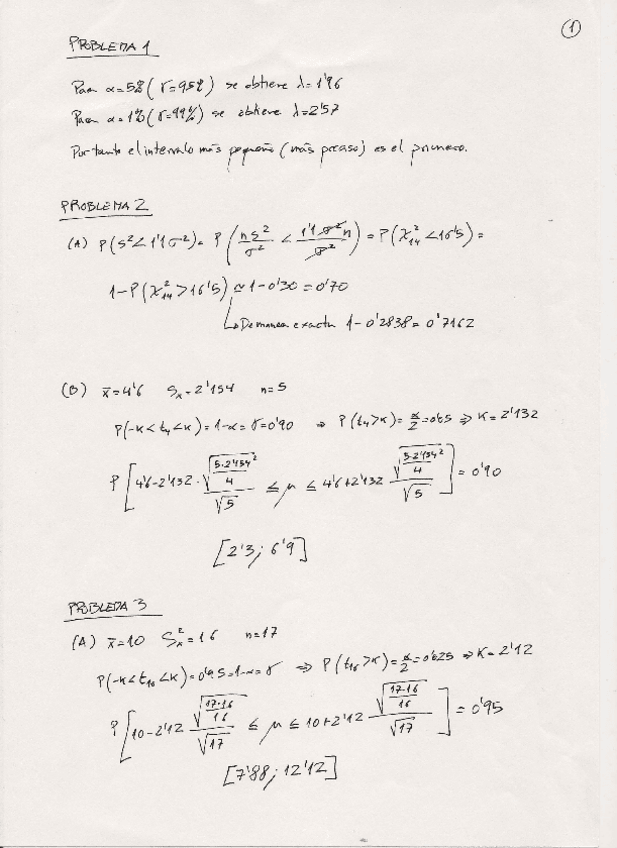 ①
PROBLEMA 1
Para α=5% (γ=95%) se obtiene λ=1'96
Para α=1% (γ=99%) se obtiene λ=2'57
Por tanto el intervalo más pequeño (más preciso) es el primero.
PROBLEMA 2
(A) P(S²<1'1σ²)= P(nS²/σ² < 1'1σ²n/σ²) = P(χ²₁₄<16'5) =
1-P(χ²₁₄>16'5) ≃ 1-0'30 = 0'70
↳ De manera exacta 1-0'2838 = 0'7162
(B) x̄=4'6 Sₓ=2'154 n=5
P(-K<t₄<K)=1-α=γ=0'90 ⇒ P(t₄>K)=α/2=0'05 ⇒ K=2'132
P[4'6-2'132·√(5·2'154²/4)/√5 ≤ μ ≤ 4'6+2'132 √(5·2'154²/4)/√5] = 0'90
[2'3; 6'9]
PROBLEMA 3
(A) x̄=10 Sₓ²=16 n=17
P(-K<t₁₆<K)=0'95=1-α=γ ⇒ P(t₁₆>K)=α/2=0'025 ⇒ K=2'12
P[10-2'12 √(17·16/16)/√17 ≤ μ ≤ 10+2'12 √(17·16/16)/√17] = 0'95
[7'88; 12'12]